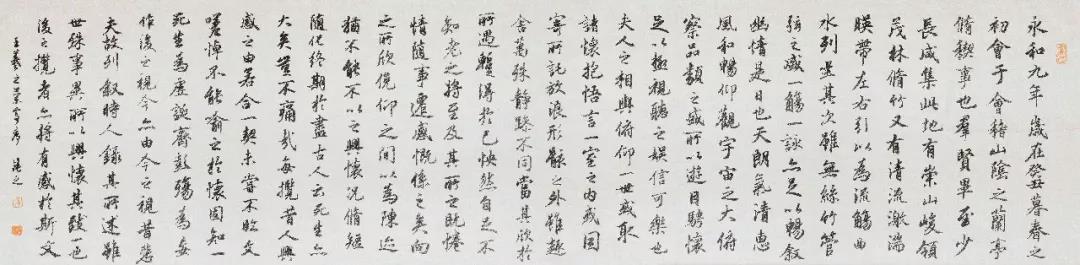 永和九年歲在癸丑暮春之
初會于會稽山陰之蘭亭
脩禊事也羣賢畢至少
長咸集此地有崇山峻領
茂林脩竹又有清流激湍
暎帶左右引以為流觴曲
水列坐其次雖無絲竹管
弦之盛一觴一詠亦足以暢敘
幽情是日也天朗氣清惠
風和暢仰觀宇宙之大俯
察品類之盛所以遊目騁懷
足以極視聽之娛信可樂也
夫人之相與俯仰一世或取
諸懷抱悟言一室之內或因
寄所託放浪形骸之外雖趣
舍萬殊靜躁不同當其欣於
所遇蹔得於己怏然自足不
知老之將至及其所之既惓
情隨事遷感慨係之矣向
之所欣俛仰之間以為陳迹
猶不能不以之興懷況脩短
隨化終期於盡古人云死生亦
大矣豈不痛哉每攬昔人興
感之由若合一契未嘗不臨文
嗟悼不能喻之於懷固知一
死生為虛誕齊彭殤為妄
作後之視今亦由今之視昔悲
夫故列叙時人錄其所述雖
世殊事異所以興懷其致一也
後之攬者亦將有感於斯文
王羲之蘭亭序